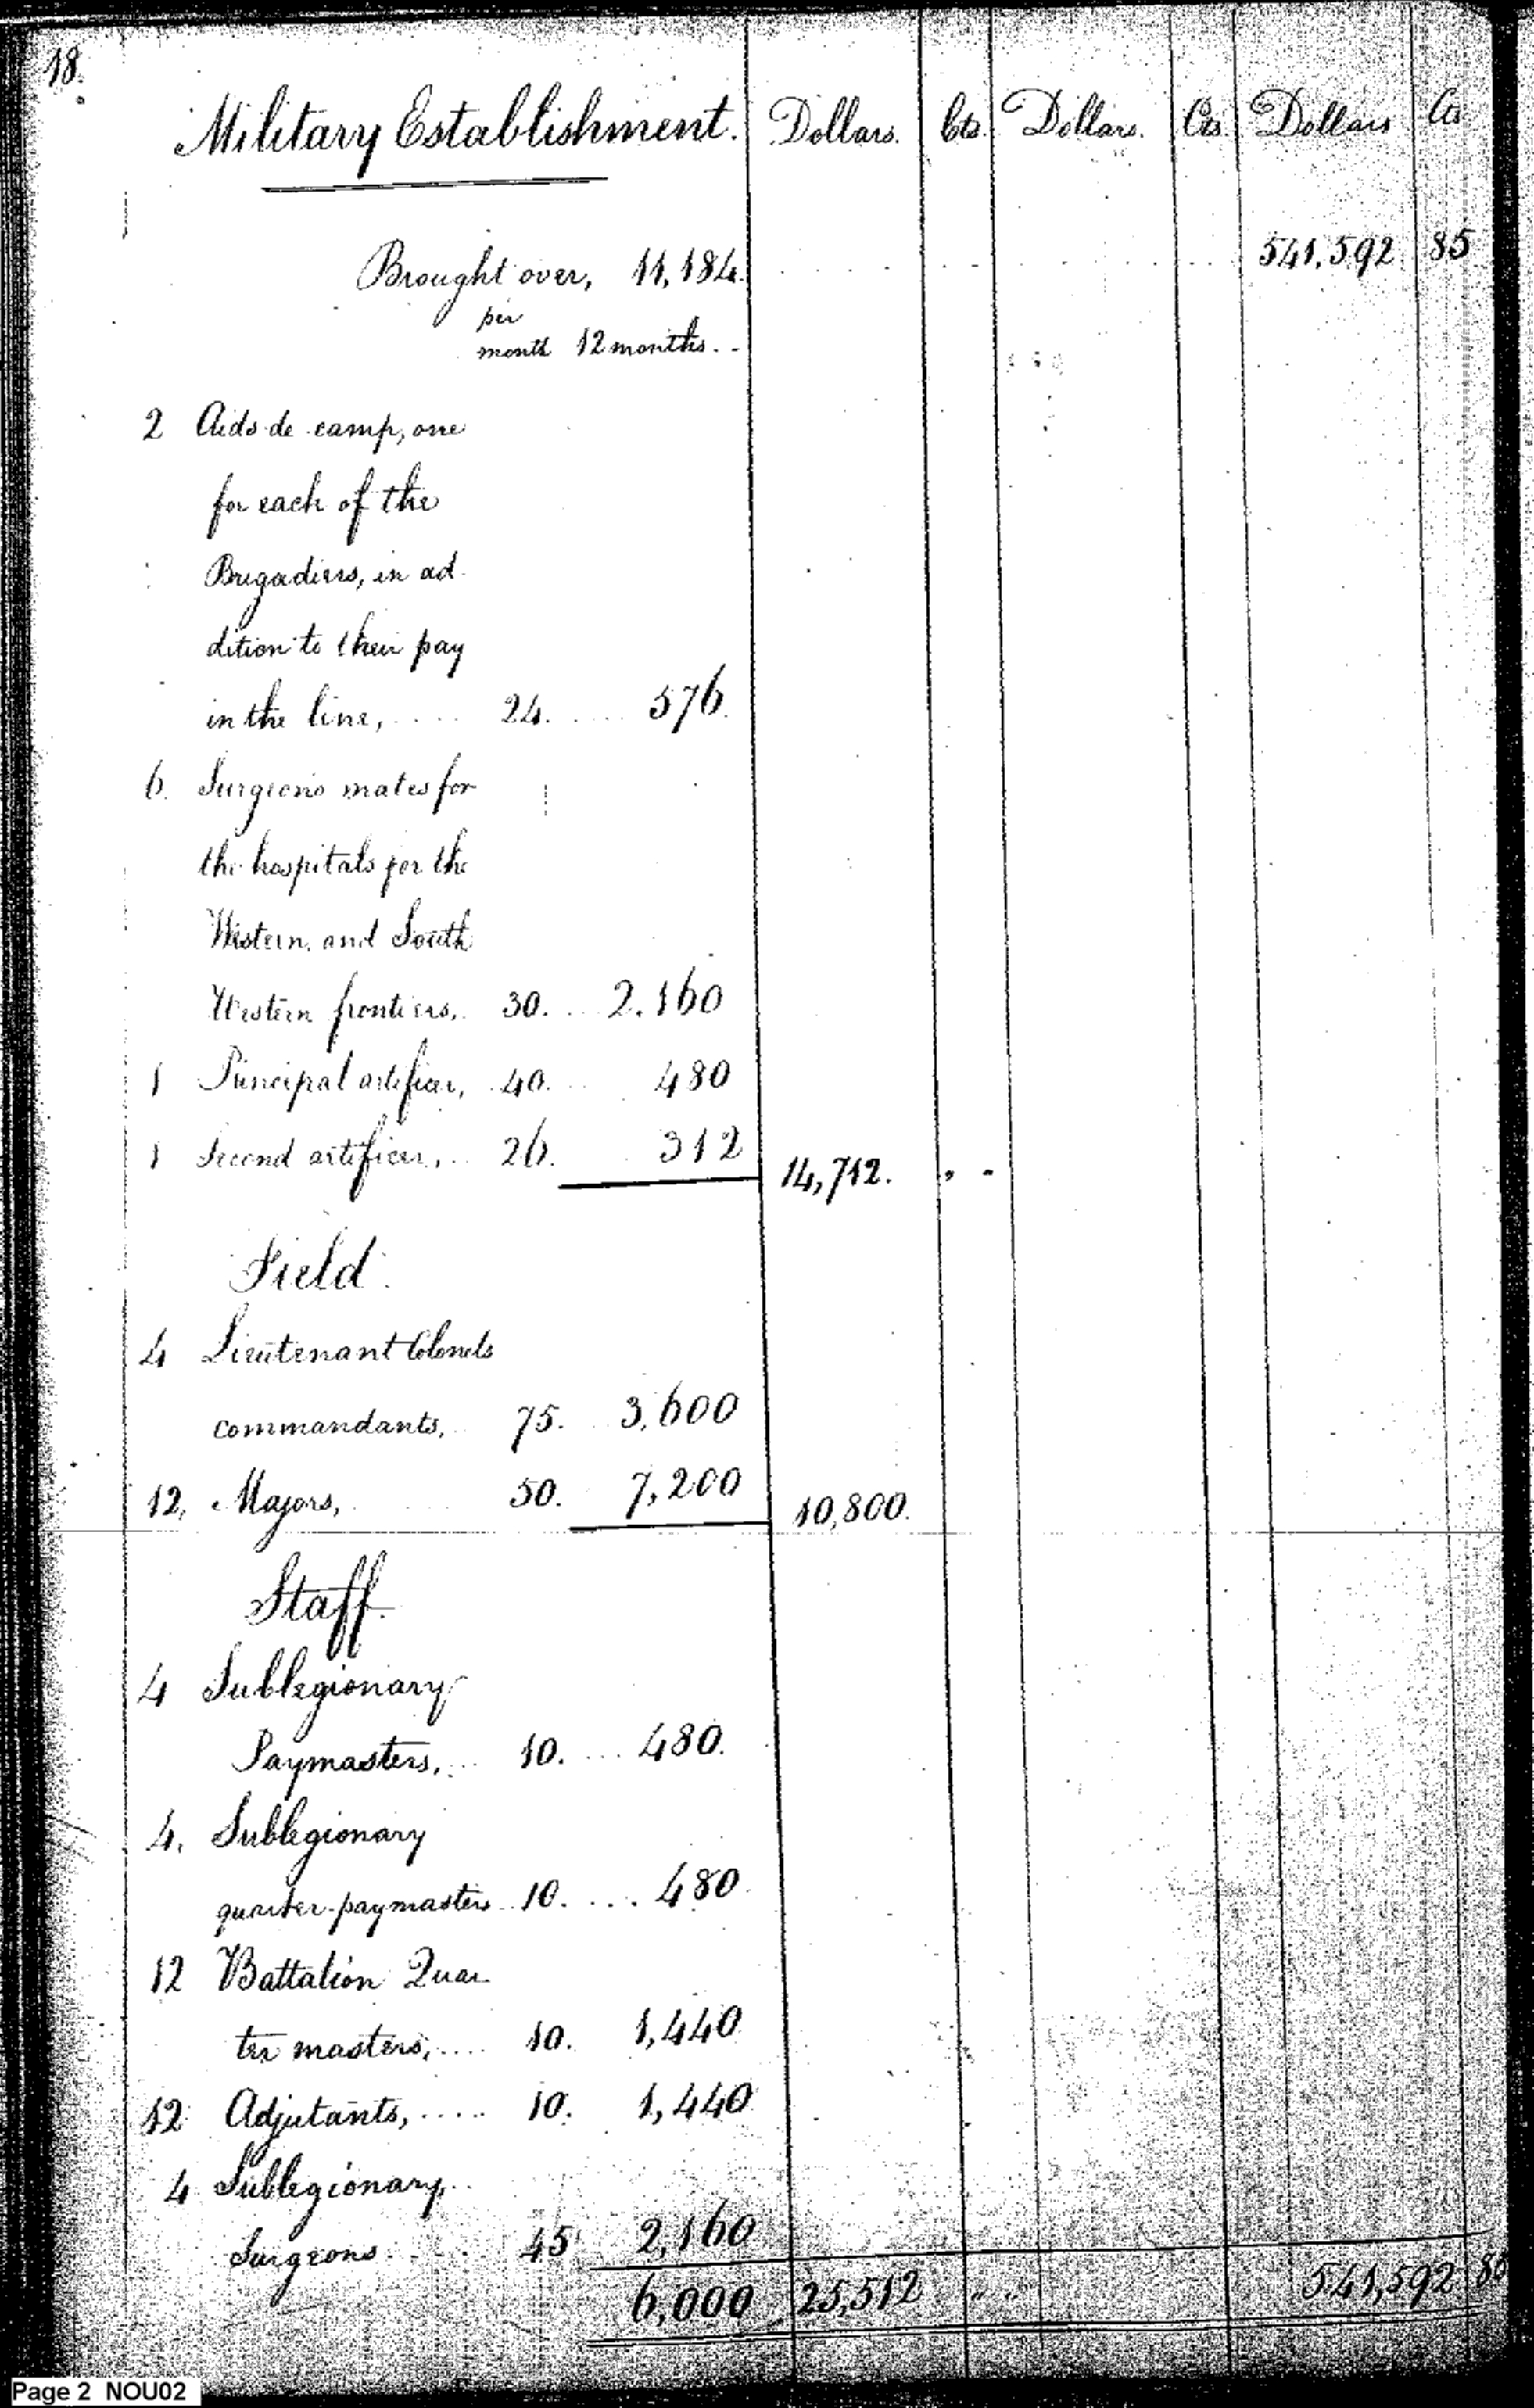 18.
Military Establishment. Dollars. Cts. Dollars. Cts. Dollars Cts
Brought over, 11,184. 541,592 85
per
month 12 months.
2 Aids de camp, one
for each of the
Brigadiers, in ad
dition to their pay
in the line, .... 24. .... 576.
6. Surgeons mates for
the hospitals for the
Western, and South
Western frontiers, 30. .. 2,160
1 Principal artificer, 40. ... 480
1 Second artificer, .. 26. 312 14,712. " "
Field.
4 Lieutenant Colonels
commandants, 75. 3,600
12, Majors, 50. 7,200 10,800.
Staff.
4 Sublegionary
Paymasters, ... 10. ... 480.
4. Sublegionary
quarter-paymasters 10. .... 480
12 Battalion Quar
ter masters, .... 10. 1,440
12 Adjutants, .... 10. 1,440
4 Sublegionary
Surgeons 45 2,160
6,000 25,512 " " 541,592 85
Page 2 NOU02